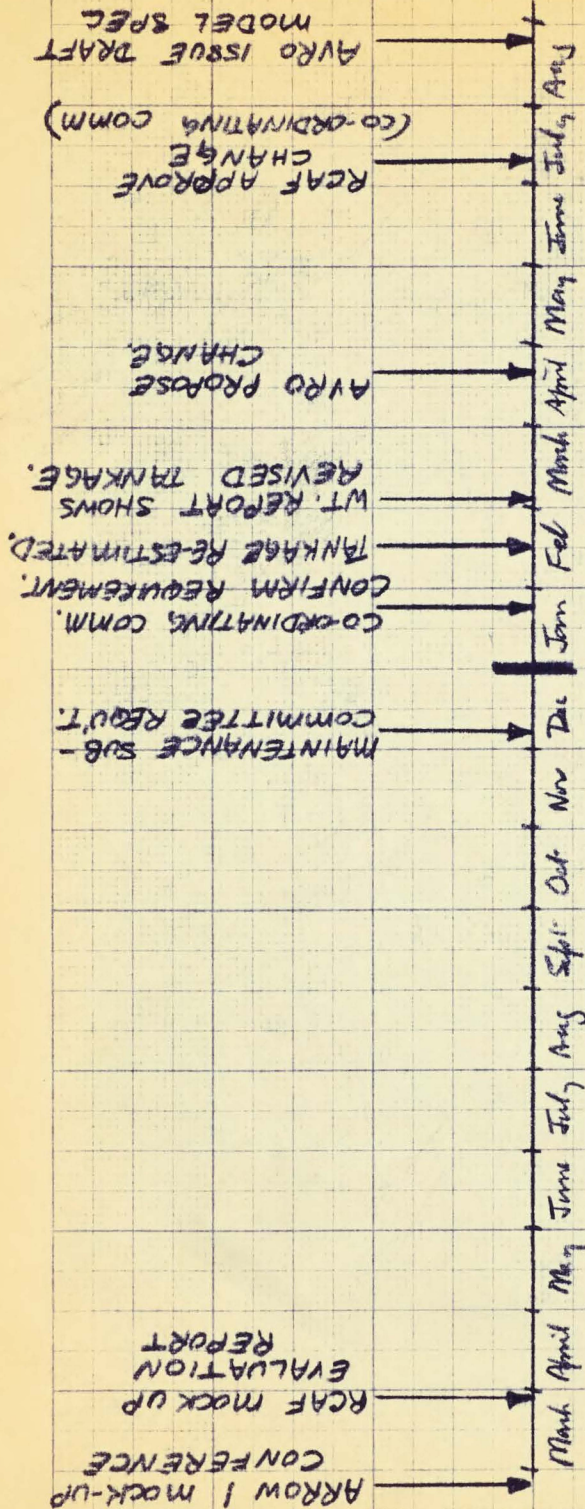 ARROW 1 MOCK-UP
CONFERENCE
RCAF MOCK UP
EVALUATION
REPORT
MAINTENANCE SUB-
COMMITTEE REQU'T.
CO-ORDINATING COMM.
CONFIRM REQUIREMENT.
TANKAGE RE-ESTIMATED.
WT. REPORT SHOWS
REVISED TANKAGE.
AVRO PROPOSE
CHANGE.
RCAF APPROVE
CHANGE
(CO-ORDINATING COMM)
AVRO ISSUE DRAFT
MODEL SPEC
March April May June July Aug Sept Oct Nov Dec Jan Feb March April May June July Aug